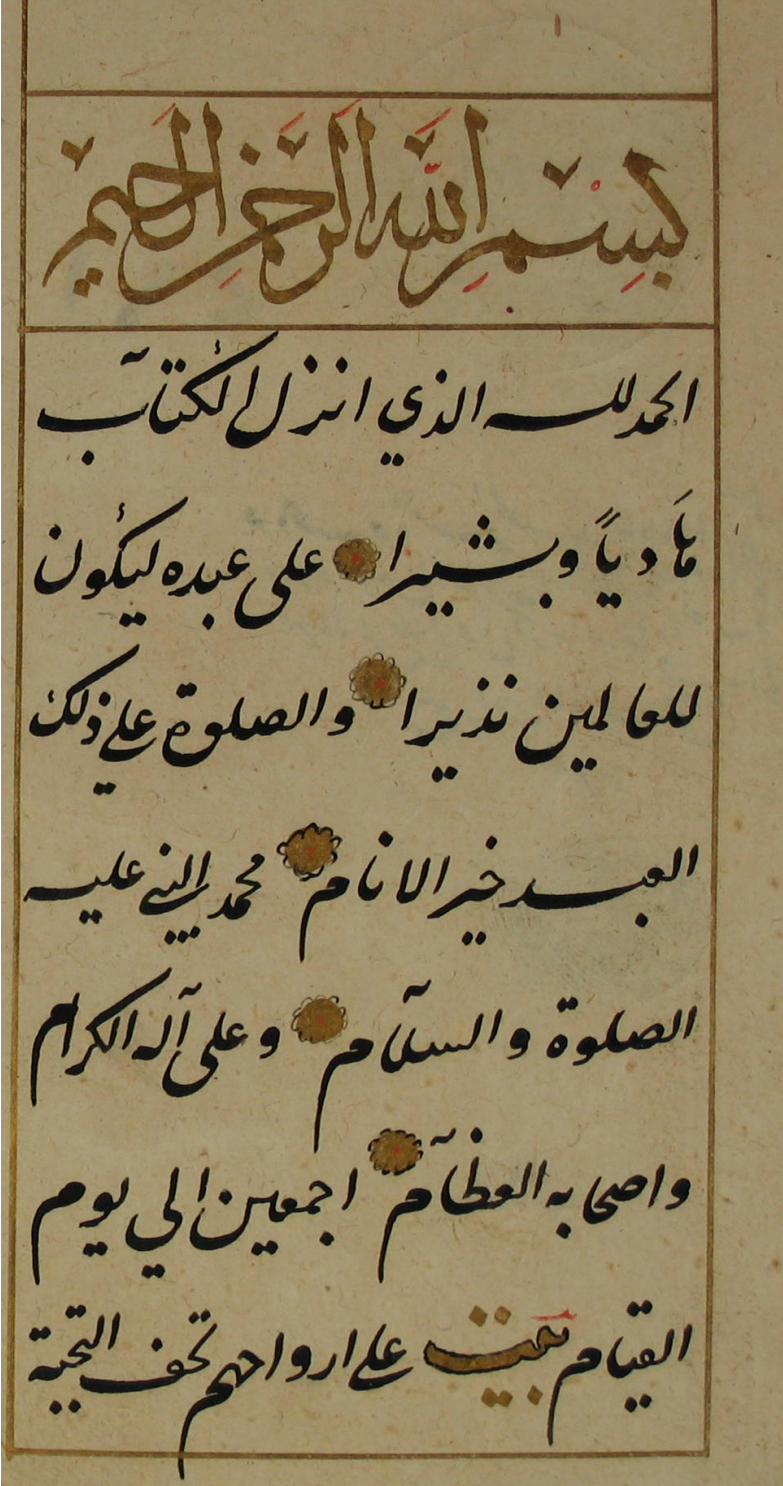 بسم الله الرحمن الرحيم
الحمد لله الذي انزل الكتاب
هَادياً وبشيرا على عبده ليكون
للعالمين نذيرا والصلوة على ذلك
العبد خير الانام محمد النبي عليه
الصلوة والسلآم وعلى آله الكرام
واصحابه العظآم اجمعين الي يوم
القيام على ارواحهم تحف التحية